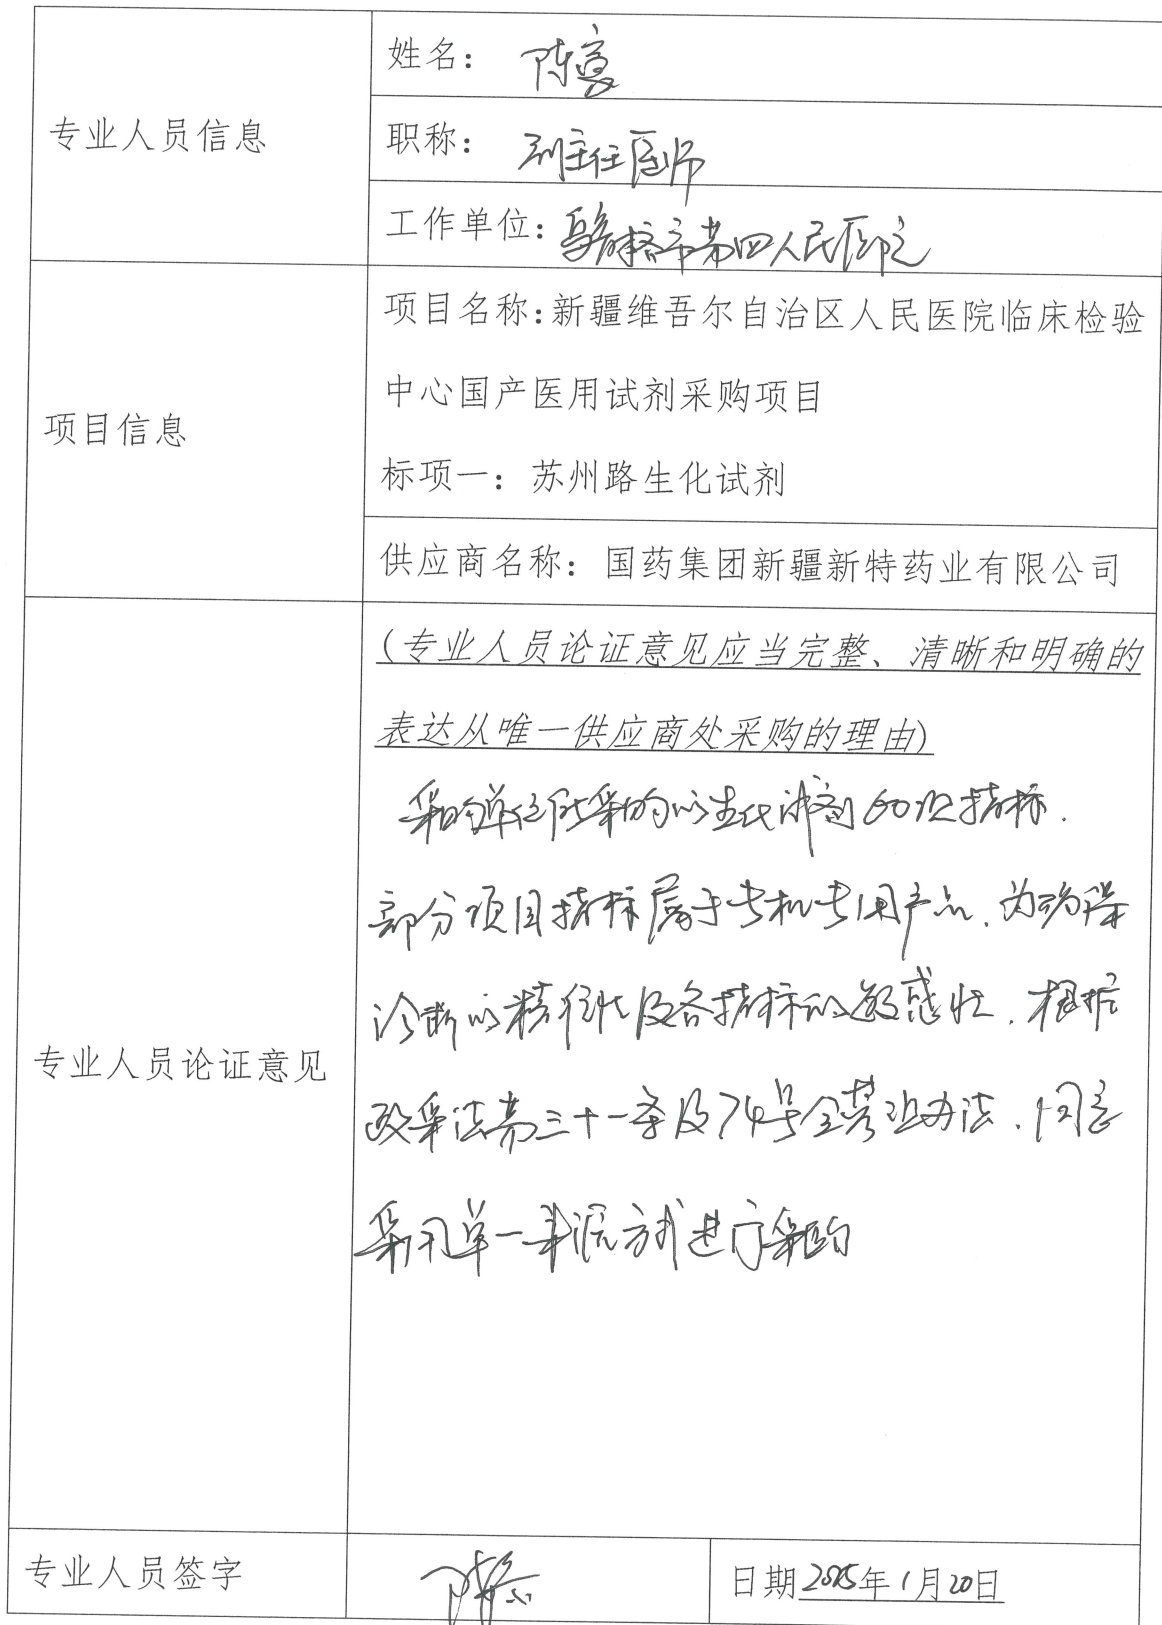 专业人员信息
姓名：陈
职称：副主任医师
工作单位：乌鲁木齐市第四人民医院
项目信息
项目名称：新疆维吾尔自治区人民医院临床检验
中心国产医用试剂采购项目
标项一：苏州路生化试剂
供应商名称：国药集团新疆新特药业有限公司
专业人员论证意见
(专业人员论证意见应当完整、清晰和明确的
表达从唯一供应商处采购的理由)
采购单位所采购的生化试剂60项指标.
部分项目指标属于专机专用产品.为确保
诊断的精准性及各指标的敏感性.根据
政采法第三十一条及74号令管理办法.同意
采用单一来源方式进行采购
专业人员签字
陈
日期2025年1月20日